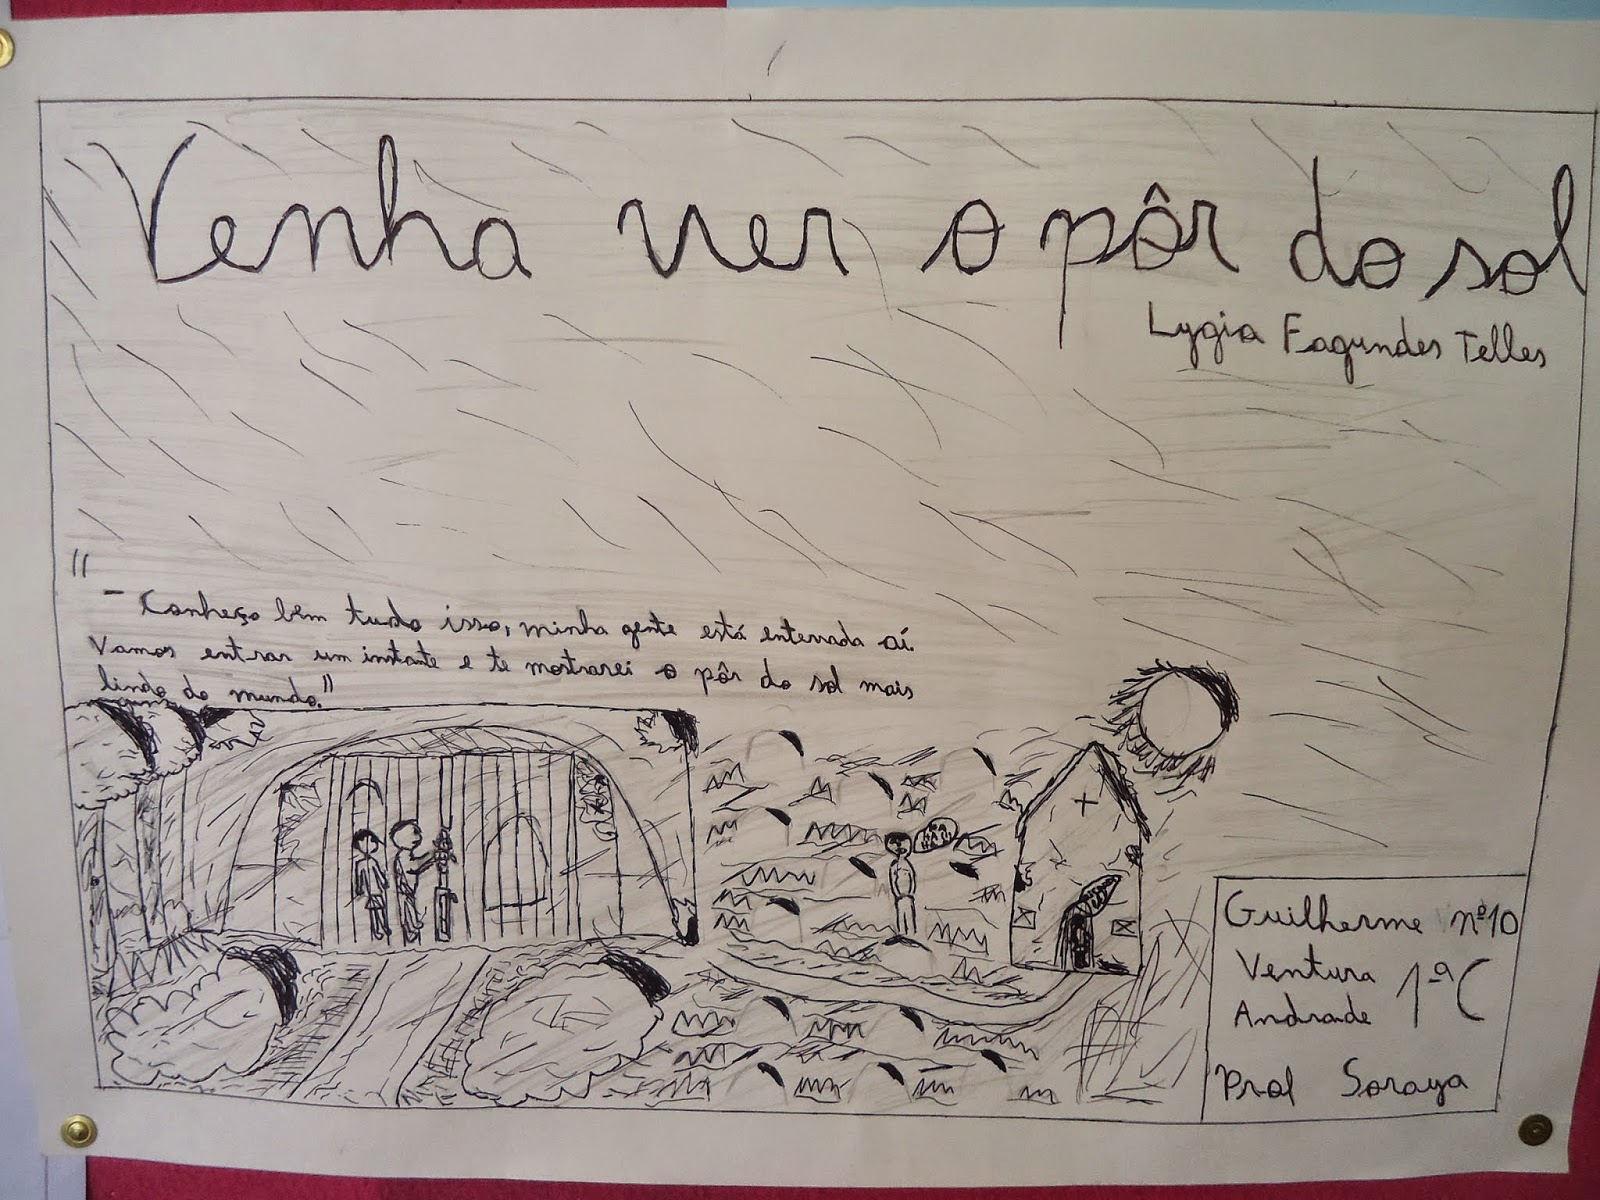 Venha ver o pôr do sol
Lygia Fagundes Telles
"
- Conheço bem tudo isso, minha gente está enterrada aí.
Vamos entrar um instante e te mostrarei o pôr do sol mais
lindo do mundo."
Guilherme nº10
Ventura 1ªC
Andrade
Prof Soraya